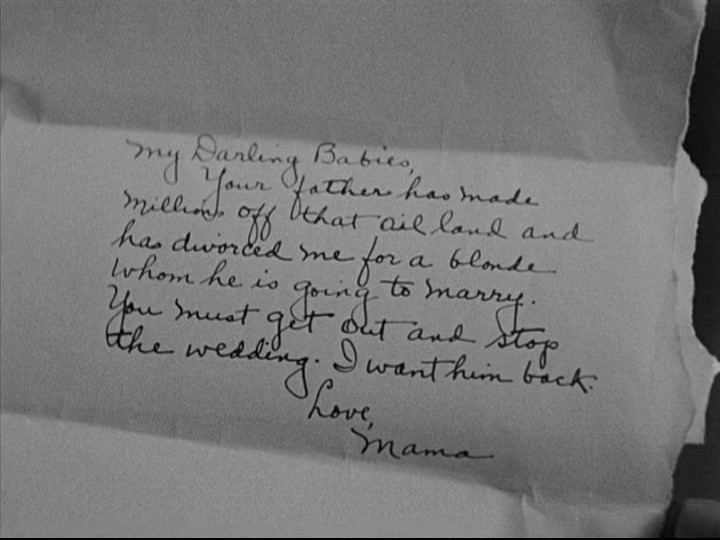 My Darling Babies,
Your father has made
millions off that oil land and
has divorced me for a blonde
whom he is going to marry.
You must get out and stop
the wedding. I want him back.
Love,
Mama